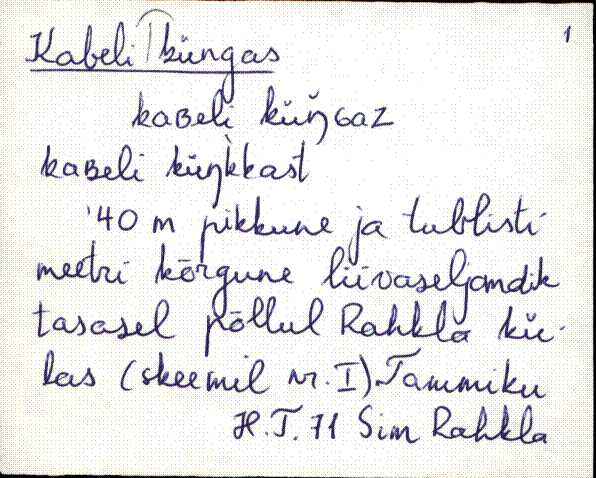 1
Kabeli küngas
kaʙeli küŋɢaz
kaʙeli küŋ̀kkast
'40 m pikkune ja tublisti
meetri kõrgune liivaseljandik
tasasel põllul Rahkla kü-
las (skeemil nr. I) Tammiku
H.T. 71 Sim Rahkla